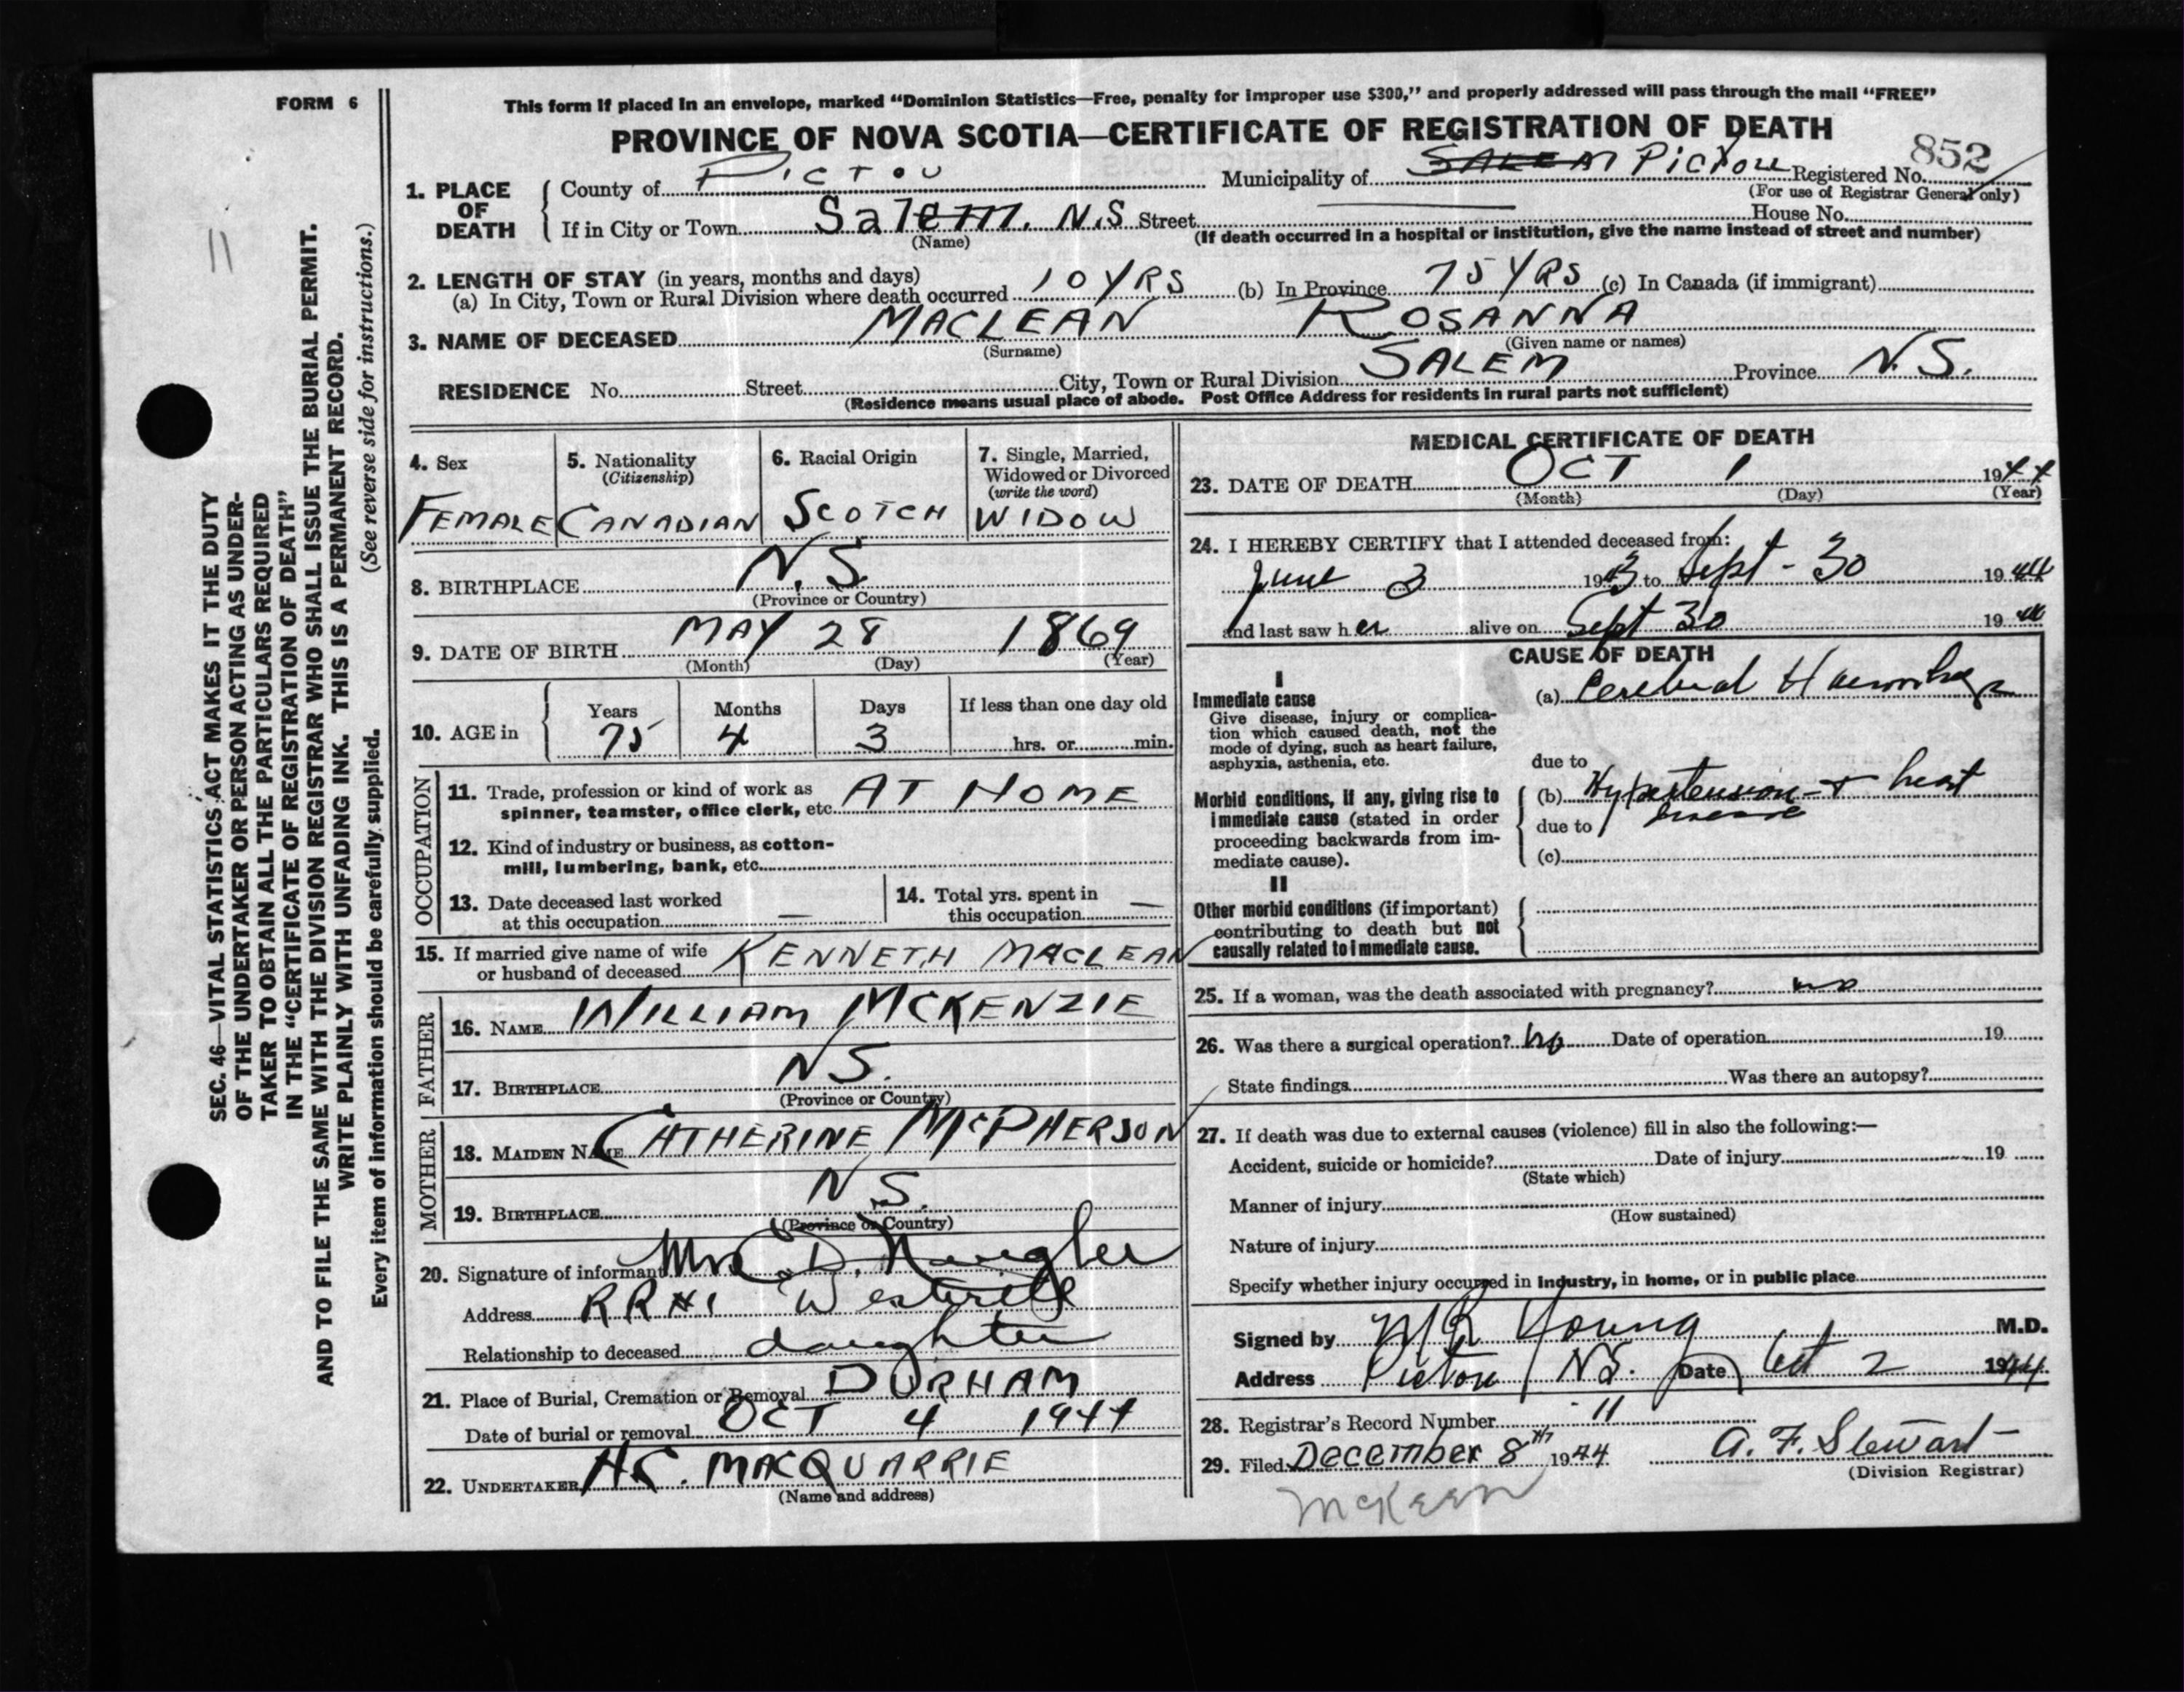 FORM 6
This form if placed in an envelope, marked "Dominion Statistics—Free, penalty for improper use $300," and properly addressed will pass through the mail "FREE"
PROVINCE OF NOVA SCOTIA—CERTIFICATE OF REGISTRATION OF DEATH
852
1. PLACE OF DEATH
County of PICTOU Municipality of SALEM PICTOU Registered No.
(For use of Registrar General only)
If in City or Town Salem. N.S Street House No.
(Name) (If death occurred in a hospital or institution, give the name instead of street and number)
2. LENGTH OF STAY (in years, months and days)
(a) In City, Town or Rural Division where death occurred 10 YRS (b) In Province 75 YRS (c) In Canada (if immigrant)
3. NAME OF DECEASED MACLEAN ROSANNA
(Surname) (Given name or names)
RESIDENCE No. Street City, Town or Rural Division SALEM Province N.S.
(Residence means usual place of abode. Post Office Address for residents in rural parts not sufficient)
11
SEC. 46—VITAL STATISTICS ACT MAKES IT THE DUTY
OF THE UNDERTAKER OR PERSON ACTING AS UNDER-
TAKER TO OBTAIN ALL THE PARTICULARS REQUIRED
IN THE "CERTIFICATE OF REGISTRATION OF DEATH"
AND TO FILE THE SAME WITH THE DIVISION REGISTRAR WHO SHALL ISSUE THE BURIAL PERMIT.
WRITE PLAINLY WITH UNFADING INK. THIS IS A PERMANENT RECORD.
Every item of information should be carefully supplied. (See reverse side for instructions.)
4. Sex
FEMALE
5. Nationality
(Citizenship)
CANADIAN
6. Racial Origin
SCOTCH
7. Single, Married,
Widowed or Divorced
(write the word)
WIDOW
8. BIRTHPLACE N.S.
(Province or Country)
9. DATE OF BIRTH MAY 28 1869
(Month) (Day) (Year)
10. AGE in
Years Months Days If less than one day old
75 4 3 hrs. or min.
OCCUPATION
11. Trade, profession or kind of work as
spinner, teamster, office clerk, etc. AT HOME
12. Kind of industry or business, as cotton-
mill, lumbering, bank, etc.
13. Date deceased last worked
at this occupation —
14. Total yrs. spent in
this occupation —
15. If married give name of wife
or husband of deceased KENNETH MACLEAN
FATHER
16. NAME WILLIAM MCKENZIE
17. BIRTHPLACE N.S.
(Province or Country)
MOTHER
18. MAIDEN NAME CATHERINE McPHERSON
19. BIRTHPLACE N.S.
(Province or Country)
20. Signature of informant Mrs C. D. Naugler
Address RR #1 Westville
Relationship to deceased daughter
21. Place of Burial, Cremation or Removal DURHAM
Date of burial or removal OCT 4 1944
22. UNDERTAKER MACQUARRIE
(Name and address)
MEDICAL CERTIFICATE OF DEATH
23. DATE OF DEATH OCT 1 1944
(Month) (Day) (Year)
24. I HEREBY CERTIFY that I attended deceased from:
June 3 1943 to Sept - 30 1944
and last saw her alive on Sept 30 1944
CAUSE OF DEATH
I
Immediate cause
Give disease, injury or complica-
tion which caused death, not the
mode of dying, such as heart failure,
asphyxia, asthenia, etc.
(a) Cerebral Haemorrhage
due to
Morbid conditions, if any, giving rise to
immediate cause (stated in order
proceeding backwards from im-
mediate cause).
(b) Hypertension + heart
disease
due to
(c)
II
Other morbid conditions (if important)
contributing to death but not
causally related to immediate cause.
25. If a woman, was the death associated with pregnancy? no
26. Was there a surgical operation? no Date of operation 19
State findings Was there an autopsy?
27. If death was due to external causes (violence) fill in also the following:—
Accident, suicide or homicide? Date of injury 19
(State which)
Manner of injury
(How sustained)
Nature of injury
Specify whether injury occurred in industry, in home, or in public place
Signed by Young M.D.
Address Pictou N.S. Date Oct 2 1944
28. Registrar's Record Number 11
29. Filed December 8th 1944 A. F. Stewart
(Division Registrar)
McKeen